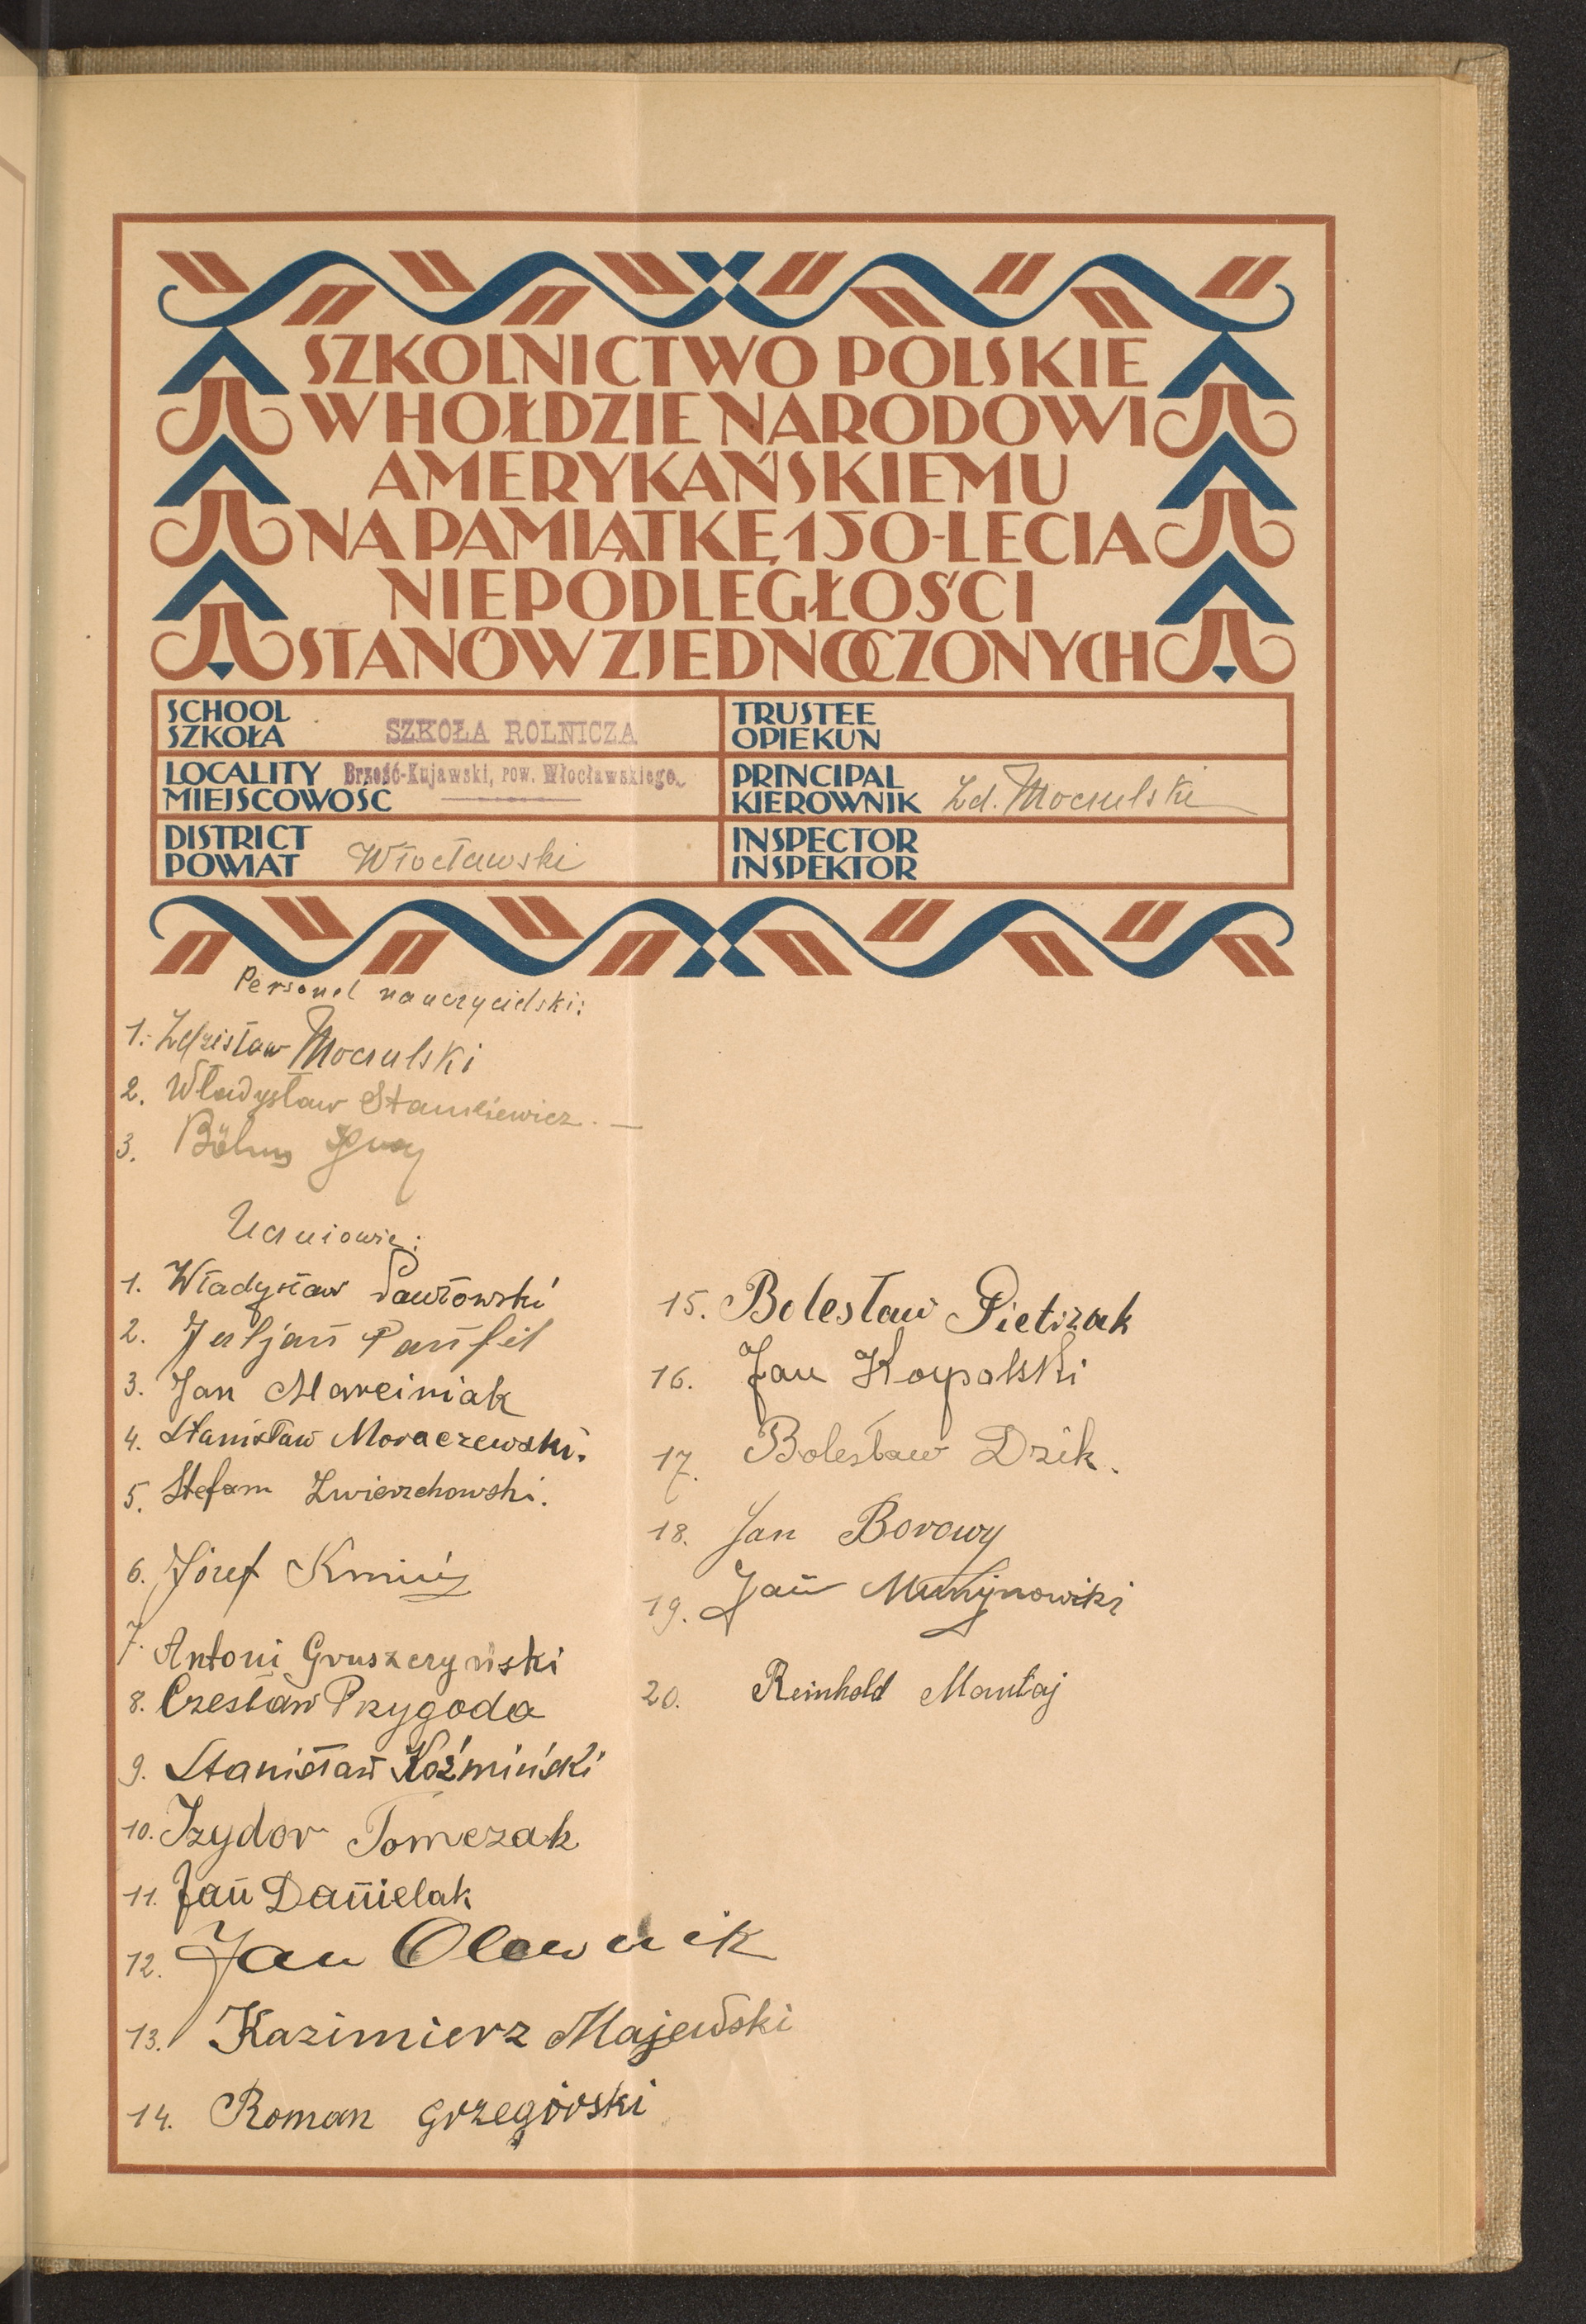 SZKOLNICTWO POLSKIE
W HOŁDZIE NARODOWI
AMERYKAŃSKIEMU
NA PAMIĄTKĘ 150-LECIA
NIEPODLEGŁOŚCI
STANÓW ZJEDNOCZONYCH
SCHOOL
SZKOŁA
SZKOŁA ROLNICZA
TRUSTEE
OPIEKUN
LOCALITY
MIEJSCOWOŚC
Brześć-Kujawski, pow. Włocławskiego.
PRINCIPAL
KIEROWNIK
Zd. Moczulski
DISTRICT
POWIAT
Włocławski
INSPECTOR
INSPEKTOR
Personel nauczycielski:
1. Zdzisław Moczulski
2. Władysław Stankiewicz. —
3. Böhm
Uczniowie:
1. Władysław Pawłowski
2. Juljan Panfil
3. Jan Marciniak
4. Stanisław Moraczewski.
5. Stefan Zwierzchowski.
6. Józef Kmieć
7. Antoni Gruszczyński
8. Czesław Przygoda
9. Stanisław Koźmiński
10. Izydor Tomczak
11. Jan Danielak
12. Jan Olewnik
13. Kazimierz Majewski
14. Roman Grzegórski
15. Bolesław Pietrzak
16. Jan Korpalski
17. Bolesław Dzik.
18. Jan Borowy
19. Jan
20. Reinhold Mantaj